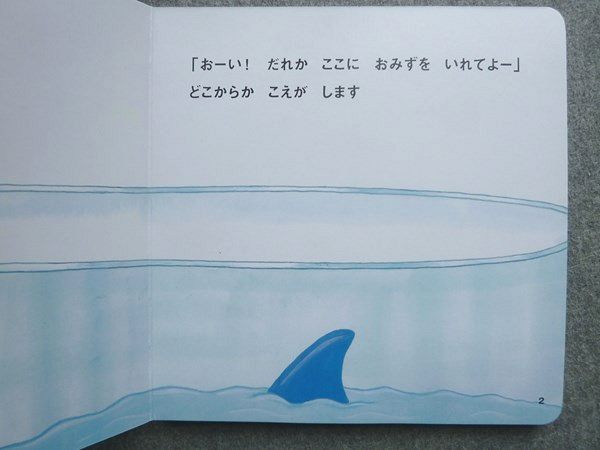 「おーい！ だれか ここに おみずを いれてよー」
どこからか こえが します
2